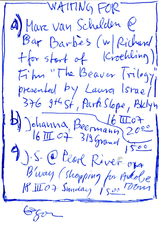 WAITING FOR
a) Marc van Schelden @
Bar Barbès (w/ Richard
+ for start of
Film "The Beaver Trilogy"
presented by Laura Israel/
376 9th St, Park Slope, Bklyn
16 III 07 20:00
b) Johanna Beermann
16 III 07 319 Grand 15:00
J.S. @ Pearl River on
B'way (shopping for
18 III 07 Sunday 15:00 room